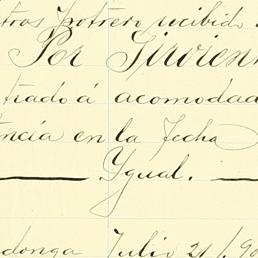 tros potrero recibido
Por Sirvien
trado á acomodad
ncia en la fecha
Ygual.
donga Julio 21/90